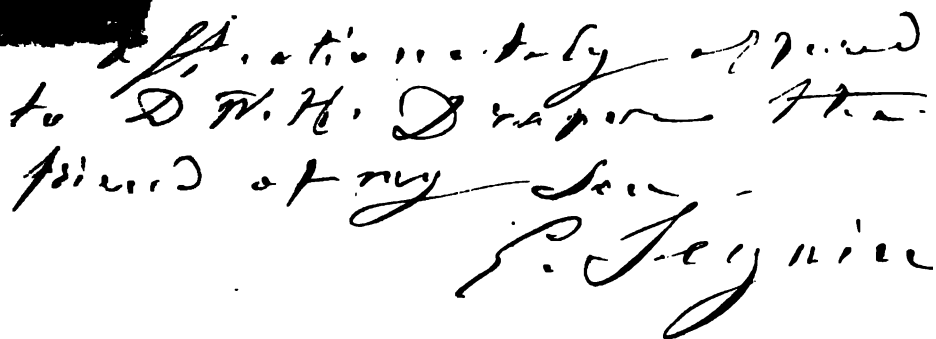 Affectionately offered
to D W. H. Draper the
friend of my Son -
E. Seguin